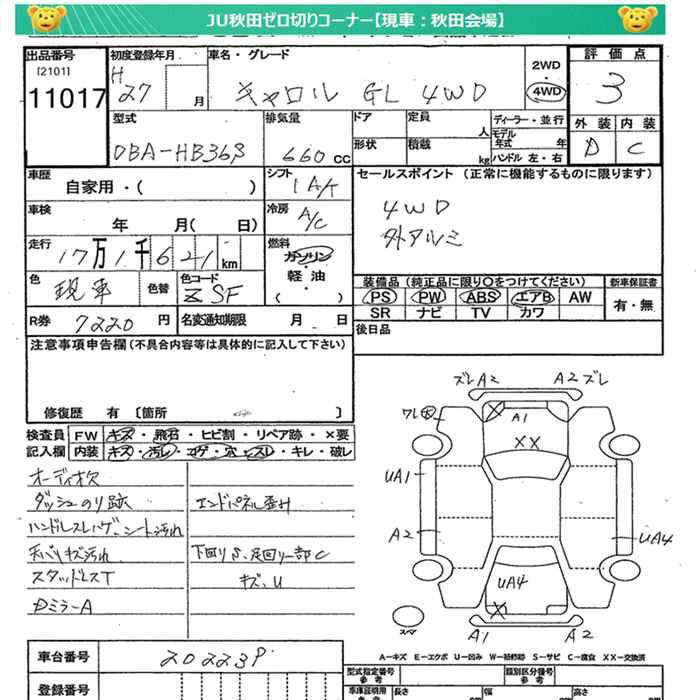 JU秋田ゼロ切りコーナー【現車：秋田会場】
出品番号 初度登録年月 車名・グレード 2WD ・ 4WD 評価点
[2101] H 27 月 キャロル GL 4WD 3
11017
型式 排気量 ドア 定員 人 ディーラー・並行 外装 内装
DBA-HB36S 660 CC 形状 積載 kg モデル年式 年 D C
ハンドル 左・右
車歴 シフト セールスポイント (正常に機能するものに限ります)
自家用・( ) IA/T
車検 冷房 4WD
年 月( 日) A/C 外アルミ
走行 燃料
17万1千621 km ガソリン・軽油
色 色替 色コード ( )
現車 ZSF
装備品 (純正品に限り〇をつけてください) 新車保証書
PS PW ABS エアB AW 有・無
SR ナビ TV カワ
R券 7220 円 名変通知期限 月 日 後日品
注意事項申告欄(不具合内容等は具体的に記入して下さい)
修復歴 有 〔箇所 〕
検査員 FW キズ・飛石・ヒビ割・リペア跡・×要
記入欄 内装 キズ・汚レ・コゲ・穴・スレ・キレ・破レ
ズレ A2 A2 ズレ
ワレ大 A1
XX
UA1
A2 UA4
UA4
スペア
A1 A2
オーディオ欠
ダッシュのり跡 エンドパネル歪み
ハンドルスレハゲ、シート汚れ
天バリキズ汚れ 下回りS、足回り一部C
スタッドレスT キズ、U
Dミラー A
A-キズ E-エクボ U-凹み W-補修跡 S-サビ C-腐食 XX-交換済
車台番号 202239
登録番号
型式指定番号 参考 類別区分番号 参考
車庫証明用 参考 長さ 幅 高さ